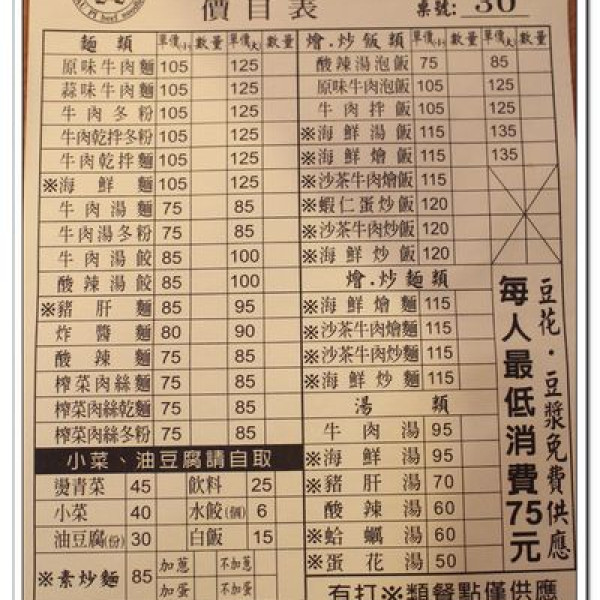 PI beef noodle
價目表
票號: 30
麵類 單價(小) 數量 單價(大) 數量
原味牛肉麵 105 125
蒜味牛肉麵 105 125
牛肉冬粉 105 125
牛肉乾拌冬粉 105 125
牛肉乾拌麵 105 125
※海鮮麵 105 125
牛肉湯麵 75 85
牛肉湯冬粉 75 85
牛肉湯餃 85 100
酸辣湯餃 85 100
※豬肝麵 85 95
炸醬麵 80 90
酸辣麵 75 85
榨菜肉絲麵 75 85
榨菜肉絲乾麵 75 85
榨菜肉絲冬粉 75 85
小菜、油豆腐請自取
燙青菜 45 飲料 25
小菜 40 水餃(個) 6
油豆腐(份) 30 白飯 15
※素炒麵 85 加蔥 不加蔥
加蛋 不加蛋
燴.炒飯類 單價(小) 數量 單價(大) 數量
酸辣湯泡飯 75 85
原味牛肉泡飯 105 125
牛肉拌飯 105 125
※海鮮湯飯 115 135
※海鮮燴飯 115 135
※沙茶牛肉燴飯 115
※蝦仁蛋炒飯 120
※沙茶牛肉炒飯 120
※海鮮炒飯 120
燴.炒麵類
※海鮮燴麵 115
※沙茶牛肉燴麵 115
※沙茶牛肉炒麵 115
※海鮮炒麵 115
湯類
牛肉湯 95
※海鮮湯 95
※豬肝湯 70
酸辣湯 60
※蛤蠣湯 60
※蛋花湯 50
豆花.豆漿免費供應
每人最低消費75元
有打※類餐點僅供應